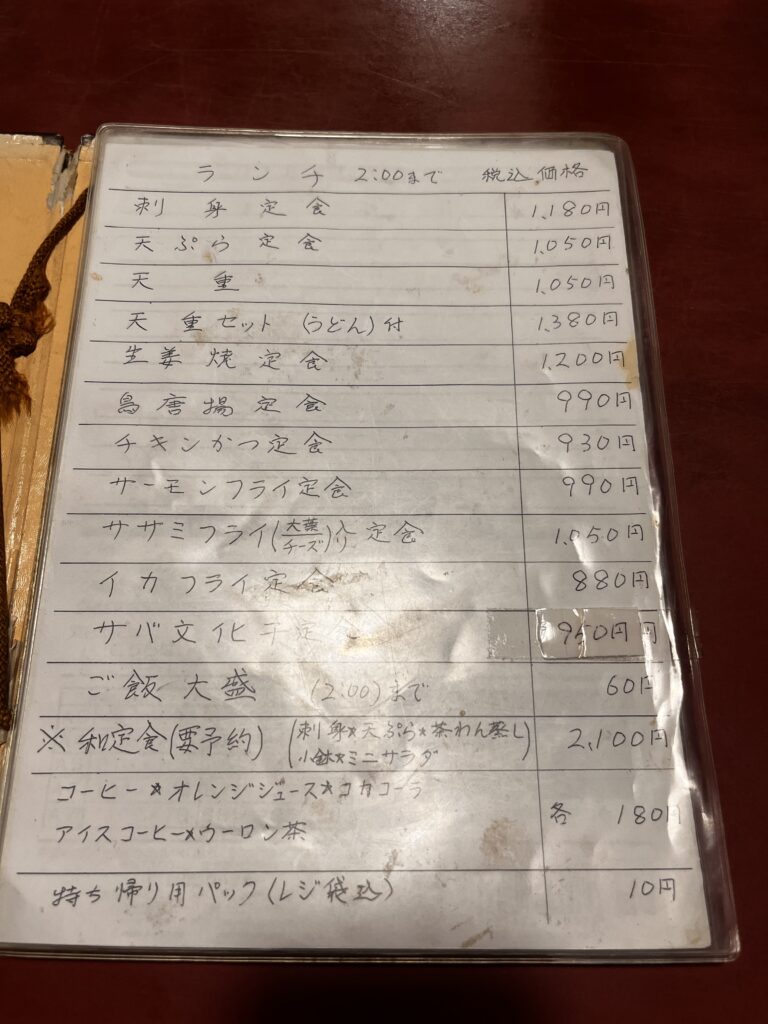 ランチ 2:00まで 税込価格
刺身定食 1,180円
天ぷら定食 1,050円
天重 1,050円
天重セット (うどん)付 1,380円
生姜焼定食 1,200円
鳥唐揚定食 990円
チキンかつ定食 930円
サーモンフライ定食 990円
ササミフライ(大葉チーズ)入り定食 1,050円
イカフライ定食 880円
サバ文化干定食 950円円
ご飯大盛 (2:00)まで 60円
※和定食(要予約) (刺身*天ぷら*茶わん蒸し 2,100円
小鉢*ミニサラダ)
コーヒー*オレンジジュース*コカコーラ
各 180円
アイスコーヒー*ウーロン茶
持ち帰り用パック(レジ袋込) 10円